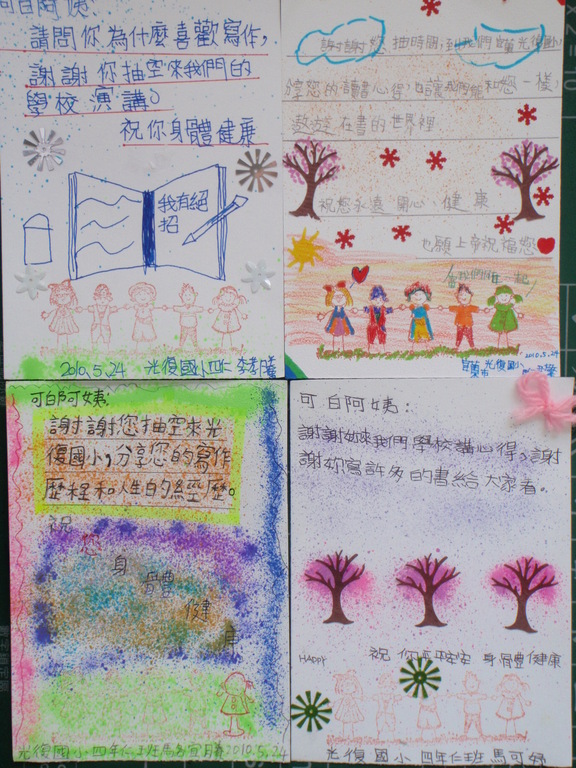 可白阿姨
請問你為什麼喜歡寫作,
謝謝你抽空來我們的
學校演講。
祝你身體健康
我有絕
招
2010.5.24 光復國小四仁
謝謝您抽時間,到我們宜蘭光復國小
分享您的讀書心得,也讓我們能和您一樣,
遨遊在書的世界裡
祝您永遠開心、健康
也願上帝祝福您
2010.5.24
宜蘭市 光復國小
可白阿姨:
謝謝您抽空來光
復國小,分享您的寫作
歷程和人生的經歷。
祝
您
身
體
健
康
光復國小四年仁班馮宜2010.5.24
可白阿姨:
謝謝妳來我們學校講心得,謝
謝妳寫許多的書給大家看。
HAPPY
祝 你平平安安 身體健康
光復國小 四年仁班 馬可妤